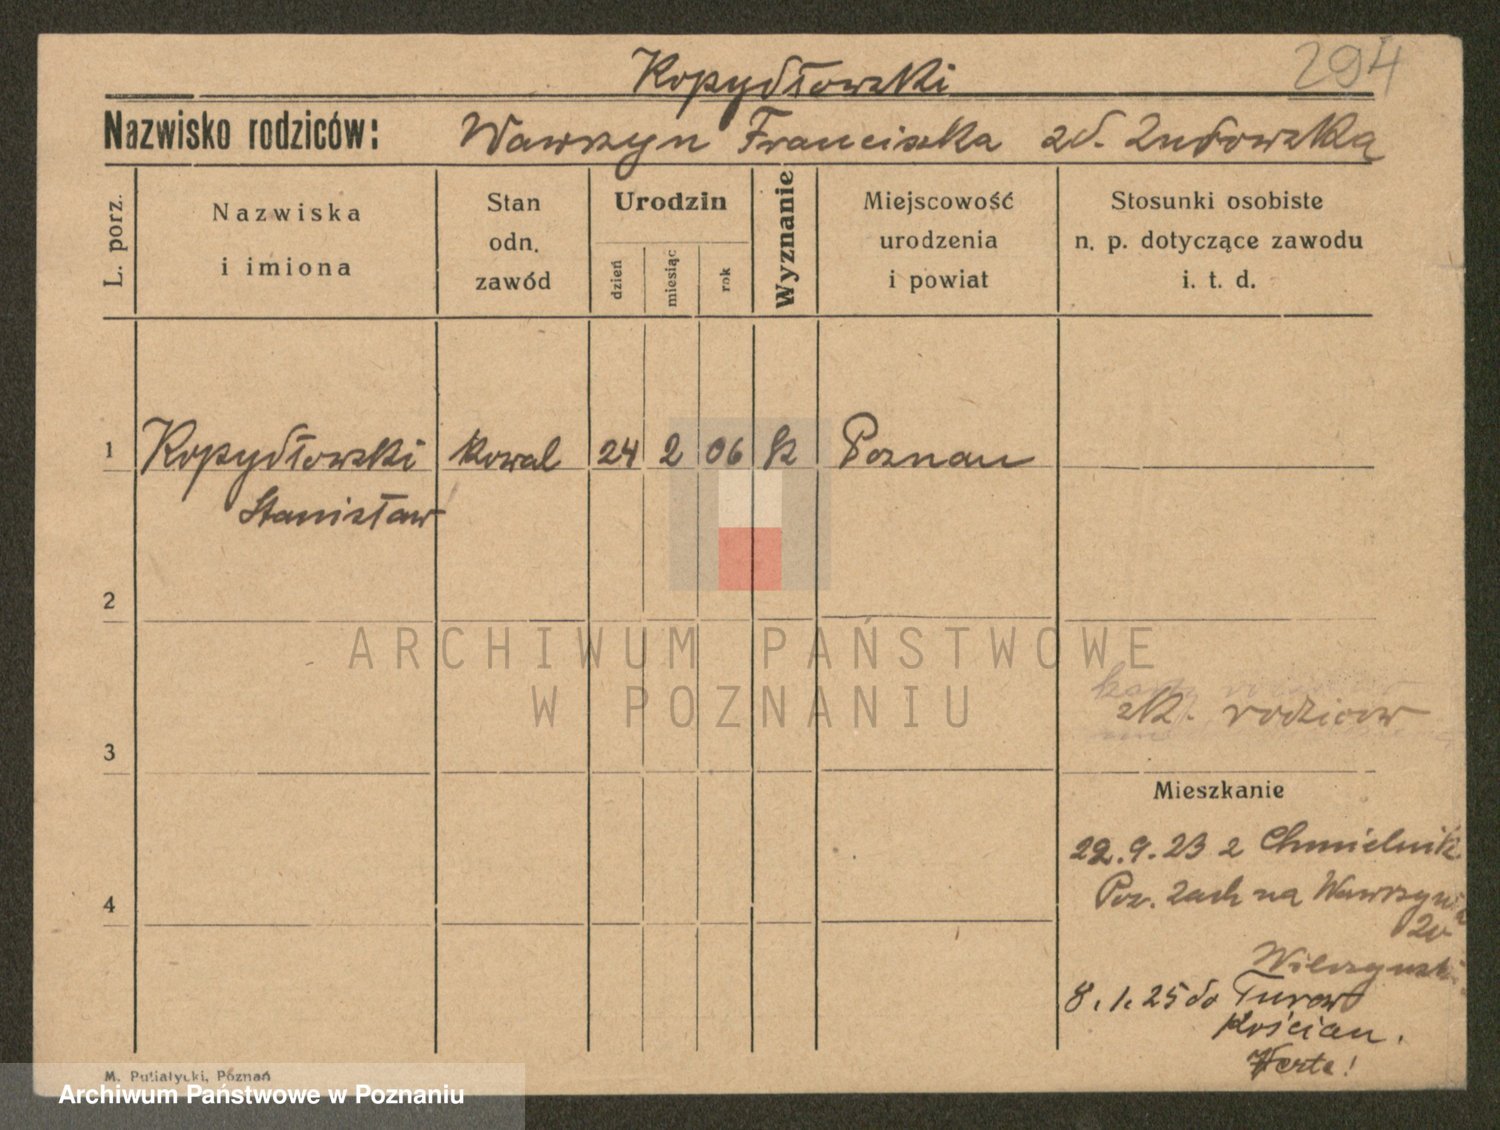 Kopydłowski 294
Nazwisko rodziców: Wawrzyn Franciszka zd. Żurowska
L. porz.
Nazwiska
i imiona
Stan
odn.
zawód
Urodzin
dzień
miesiąc
rok
Wyznanie
Miejscowość
urodzenia
i powiat
Stosunki osobiste
n. p. dotyczące zawodu
i. t. d.
1 Kopydłowski kowal 24 2 06 k Poznań
Stanisław
2
ARCHIWUM PAŃSTWOWE
W POZNANIU
rodziców
3
Mieszkanie
22.9.23 z Chmielnik
Poz. Zach na
4
8.1.25 do Turew
Kościan.
Verte!
M. Putiatycki, Poznań
Archiwum Państwowe w Poznaniu